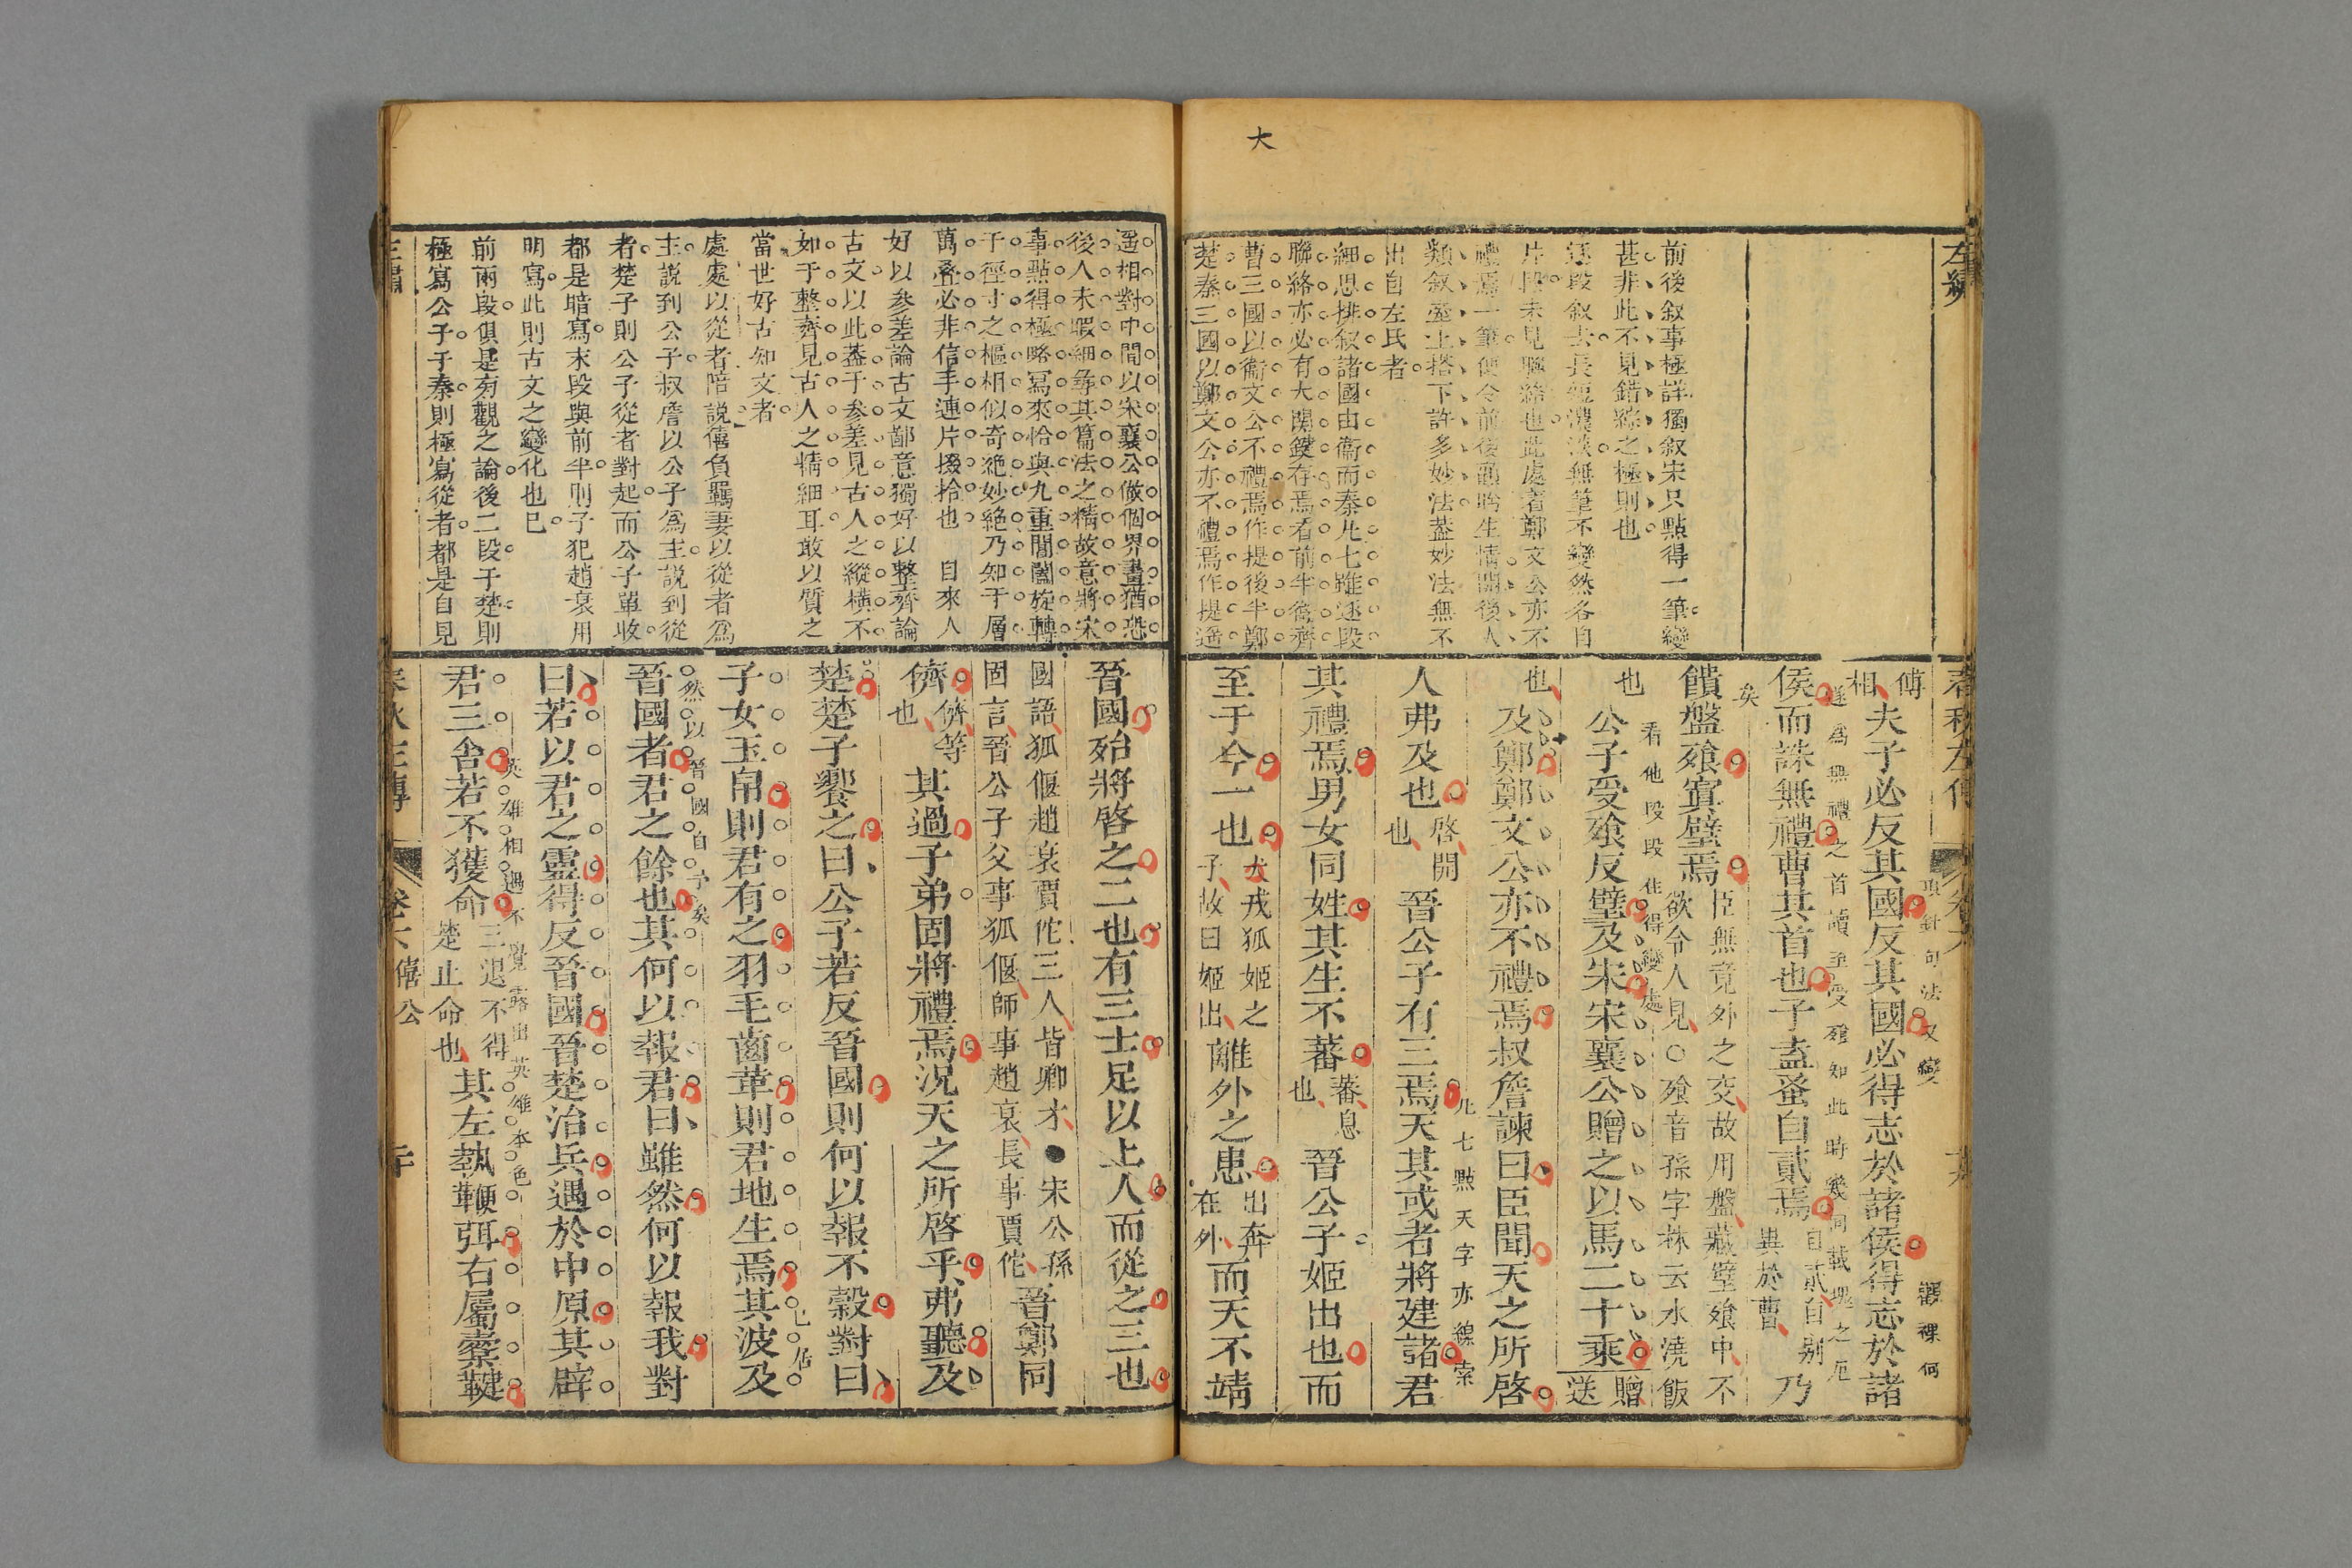 大
左繡
前後叙事極詳獨叙宋只點得一筆變
甚非此不見錯綜之極則也
逐段叙去長短濃淡無筆不變然各自
片段未見聯絡也此處着鄭文公亦不
禮焉一筆便令前後顧盼生情開後人
類叙堊上搭下許多妙法葢妙法無不
出自左氏者
細思排叙諸國由衞而秦凡七雖逐段
聯絡亦必有大関鍵存焉看前半衞齊
曹三國以衞文公不禮焉作提後半鄭
楚秦三國以鄭文公亦不禮焉作提遥
春秋左傳
傅相
夫子必反其國反其國必得志於諸侯得志於諸
侯而誅無禮曹其首也子盍蚤自貳焉
自貳自别
異於曹
乃
遂爲無禮之首讀至受飱知此時幾同載塊之厄
矣
饋盤飱寘璧焉
臣無竟外之交故用盤藏璧飱中不
欲令人見○飱音孫字林云水澆飯
也
公子受飱反璧及宋宋襄公贈之以馬二十乘
贈
送
看他段段住得變處
也
及鄭鄭文公亦不禮焉叔詹諫曰臣聞天之所啓
人弗及也
啓開
也
晉公子有三焉天其或者將建諸君
凡七㸃天字亦線索
其禮焉男女同姓其生不蕃
蕃息
也
晉公子姬出也而
至于今一也
犬戎狐姬之
子故曰姬出
離外之患
出奔
在外
而天不靖
遥相對中間以宋襄公做個界畫猶恐
後人未暇細尋其篇法之精故意將宋
事㸃得極略寫來恰與九重閶闔旋轉
于徑寸之樞相似奇絶妙絶乃知于層
萬叠必非信手連片掇拾也 自來人
好以參差論古文鄙意獨好以整齊論
古文以此葢于參差見古人之縱横不
如于整齊見古人之精細耳敢以質之
當世好古知文者
處處以從者陪説僖負羈妻以從者爲
主説到公子叔詹以公子爲主説到從
者楚子則公子從者對起而公子單收
都是暗寫末段與前半則子犯趙衰用
明寫此則古文之變化也已
前兩段俱是旁觀之論後二段于楚則
極寫公子于秦則極寫從者都是自見
晉國殆將啓之二也有三士足以上人而從之三也
國語狐偃趙衰賈佗三人皆卿才●宋公孫
固言晉公子父事狐偃師事趙衰長事賈佗
晉鄭同
儕
儕等
也
其過子弟固將禮焉況天之所啓乎弗聽及
楚楚子饗之曰公子若反晉國則何以報不穀對曰
子女玉帛則君有之羽毛齒革則君地生焉其波及
晉國者君之餘也其何以報君曰雖然何以報我對
然以晉國自予矣
曰若以君之靈得反晉國晉楚治兵遇於中原其辟
君三舍若不獲命
三退不得
楚止命也
其左執鞭弭右屬櫜鞬
英雄相遇不覺露出英雄本色
春秋左傳
卷六僖公